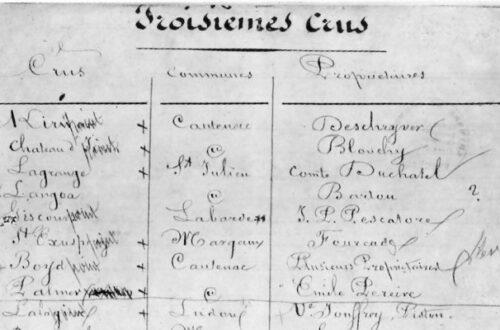 Troisièmes Crus
Crus Communes Propriétaires
Kirwan Cantenac Deschryver
Chateau @
Lagrange St Julien Comte Duchatel
Langoa @ Barton ?
Giscours Labarde J. P. Pescatore
St Exupery Margaux Fourcade
Boyd Cantenac Plusieurs Propriétaires
Palmer @ Emile Pereire
Lalagune Ludon Ve Jouffroy Piston